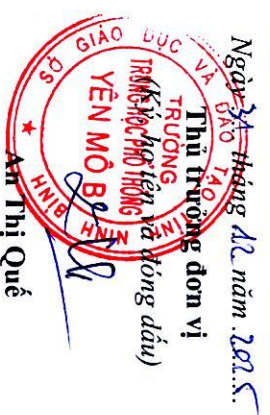 Ngày 31 tháng 12 năm 2025
Thủ trưởng đơn vị
(Ký, họ tên và đóng dấu)
SỞ GIÁO DỤC VÀ ĐÀO TẠO TỈNH NINH BÌNH
TRƯỜNG
TRUNG HỌC PHỔ THÔNG
YÊN MÔ B
★
An Thị Quế